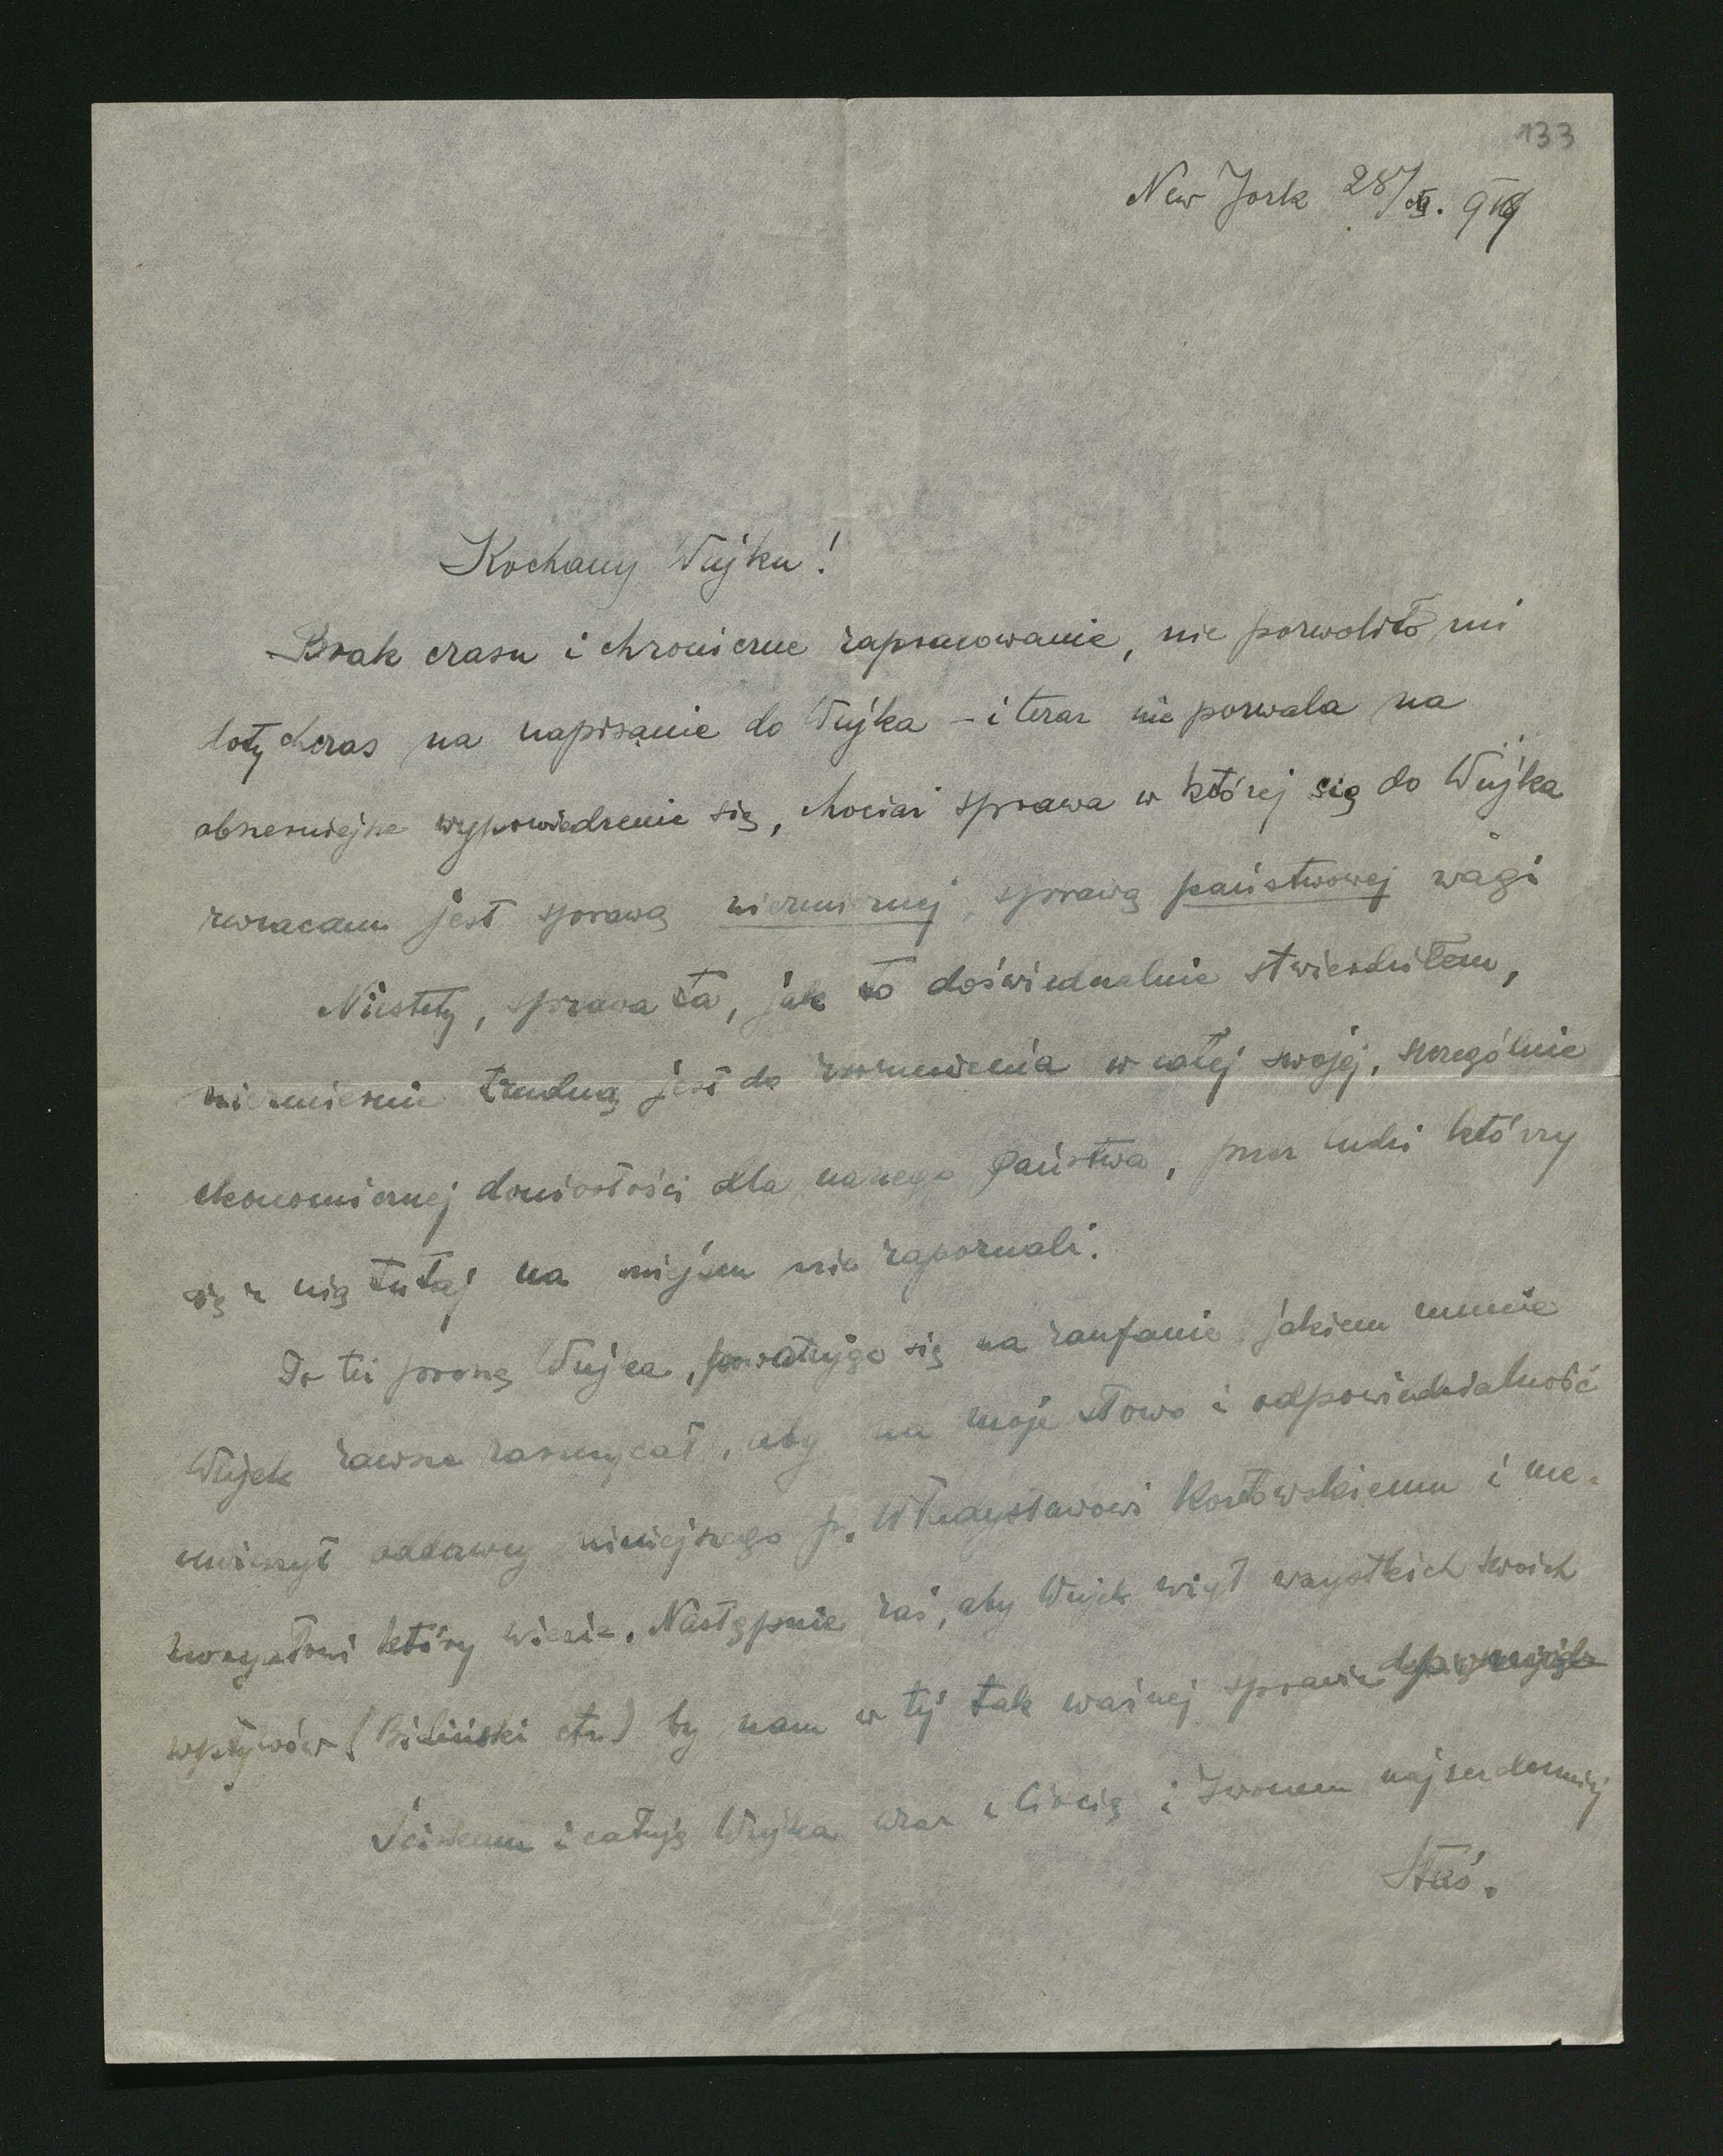 133
New York 28/XI. 919
Kochany Wujku!
Brak czasu i chroniczne zapracowanie, nie pozwoliło mi
dotychczas na napisanie do Wujka – i teraz nie pozwala na
obszerniejsze wypowiedzenie się, chociaż sprawa w której się do Wujka
zwracam jest sprawą niezmiernej, sprawą państwowej wagi
Niestety, sprawa ta, jak to doświadczalnie stwierdziłem,
niezmiernie trudną jest do zrozumienia w całej swojej, szczególnie
ekonomicznej doniosłości dla naszego Państwa, przez ludzi którzy
się z nią tutaj na miejscu nie zapoznali.
To też proszę Wujka, powołując się na zaufanie jakiem mnie
Wujek zawsze zaszczycał, aby na moje słowo i odpowiedzialność
uwierzył oddawcy niniejszego p. Władysławowi Kozłowskiemu i me-
moryałowi który wiezie. Następnie zaś, aby Wujek użył wszystkich swoich
wpływów (Biliński etc.) by nam w tej tak ważnej sprawie
Ściskam i całuję Wujka wraz z Ciocią i Iwonem najserdeczniej
Staś.